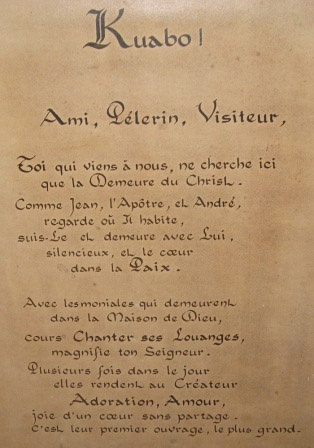 Kuabo!
Ami, Pélerin, Visiteur,
Toi qui viens à nous, ne cherche ici
que la Demeure du Christ.
Comme Jean, l'Apôtre, et André,
regarde où Il habite,
suis-Le et demeure avec Lui,
silencieux, et le cœur
dans la Paix.
Avec les moniales qui demeurent
dans la Maison de Dieu,
cours Chanter ses Louanges,
magnifie ton Seigneur.
Plusieurs fois dans le jour
elles rendent au Créateur
Adoration, Amour,
joie d'un cœur sans partage.
C'est leur premier ouvrage, le plus grand.